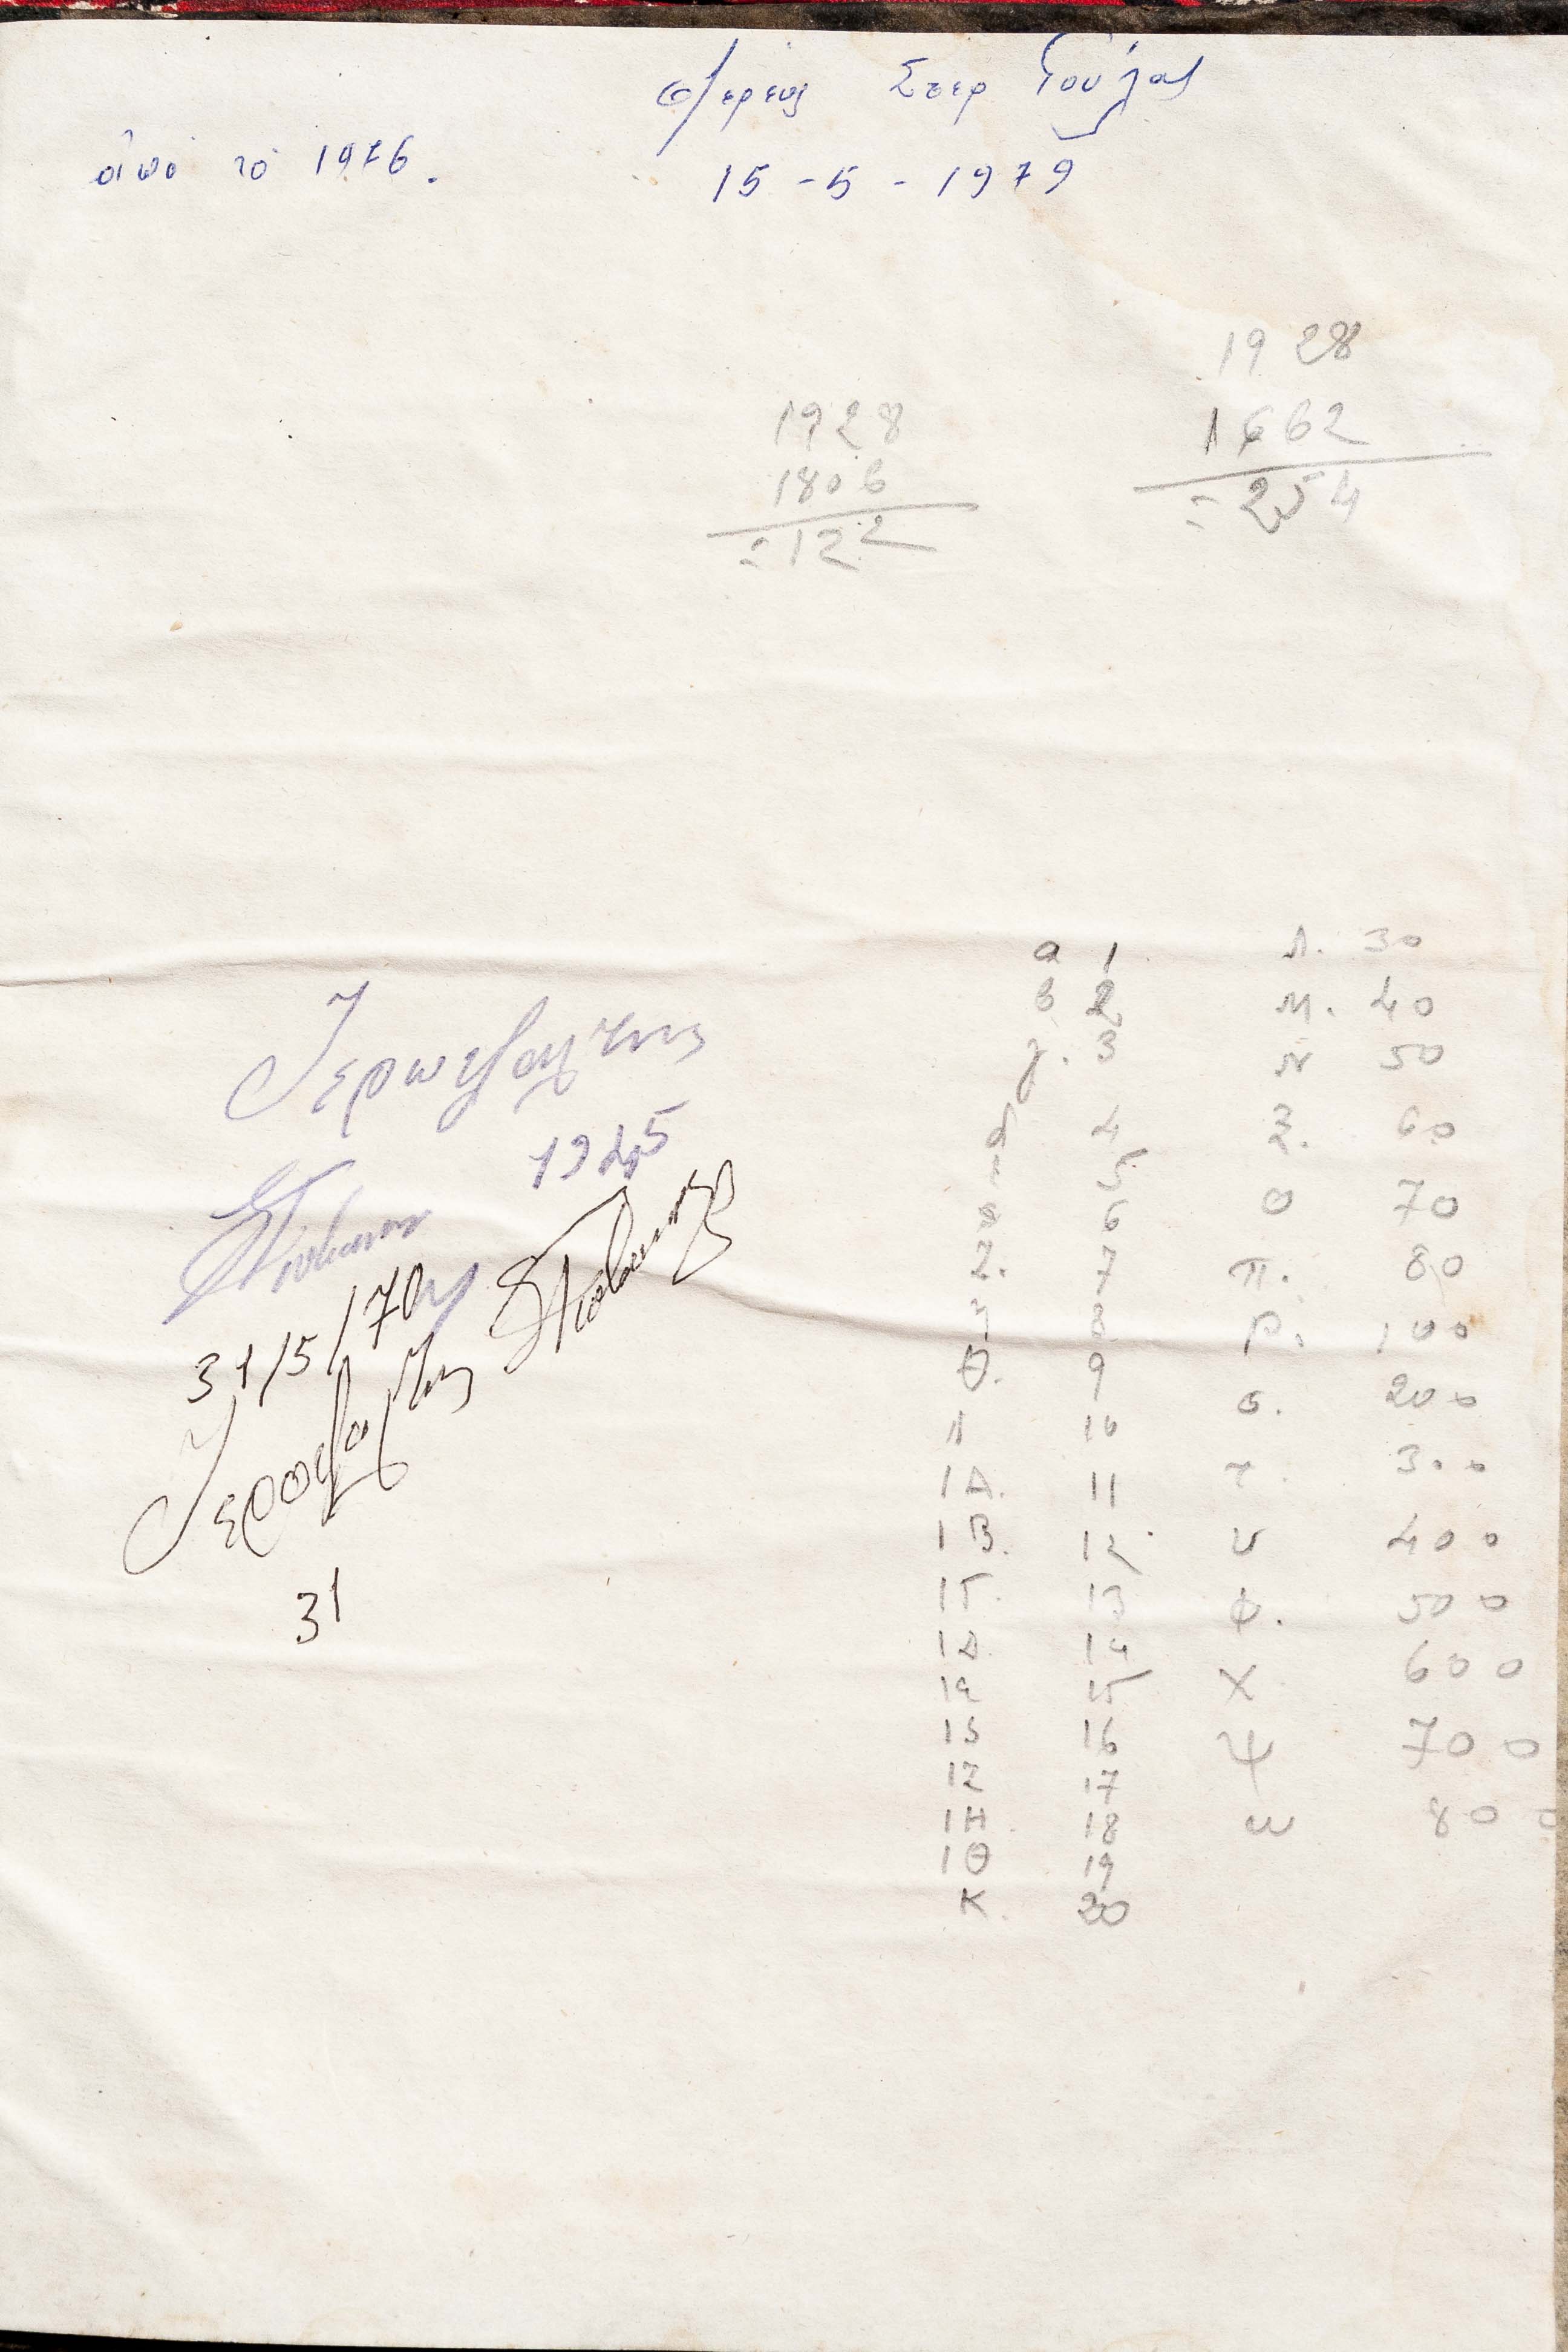 Στερ Γούλας
ἀπό το 1976.
15 - 5 - 1979
1928
1662
= 254
1928
1806
= 122
Ἱεροψάλτης
1925
31/5/70
Ἱεροψάλτης
31
α 1
β 2
γ. 3
δ 4
5
6
Ζ. 7
η 8
θ. 9
Ι 10
ΙΑ. 11
ΙΒ. 12
ΙΓ. 13
ΙΔ 14
Ιε 15
ΙS 16
ΙΖ 17
ΙΗ 18
ΙΘ 19
Κ. 20
Λ. 30
Μ. 40
Ν 50
Ξ. 60
Ο 70
π. 80
ρ. 100
σ. 200
τ. 300
υ 400
φ. 500
Χ 600
Ψ 700
ω 800